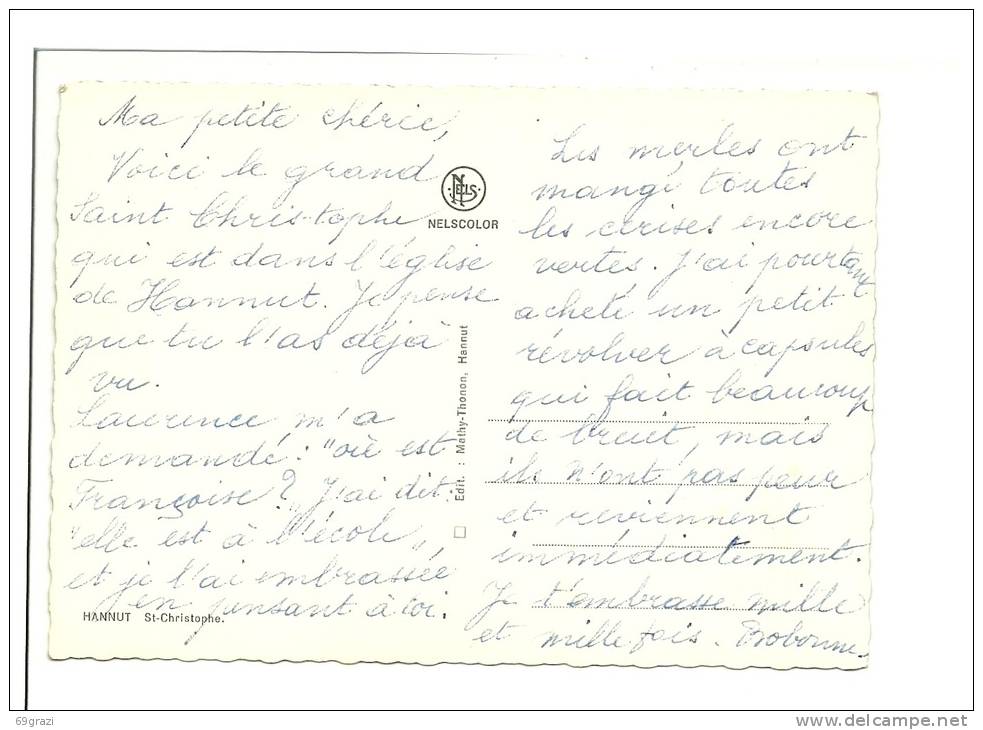 Ma petite chérie,
Voici le grand
Saint Christophe
qui est dans l'église
de Hannut. Je pense
que tu l'as déjà
vu.
Laurence m'a
demandé : "où est
Françoise? J'ai dit:
"elle est à l'école"
et je l'ai embrassée
en pensant à toi.
HANNUT St-Christophe.
NELS
NELSCOLOR
Edit. : Mathy-Thonon, Hannut
Les merles ont
mangé toutes
les cerises encore
vertes. J'ai pourtant
acheté un petit
révolver à capsules
qui fait beaucoup
de bruit, mais
ils n'ont pas peur
et reviennent
immédiatement.
Je t'embrasse mille
et mille fois. Bobonne
69grazi
www.delcampe.net